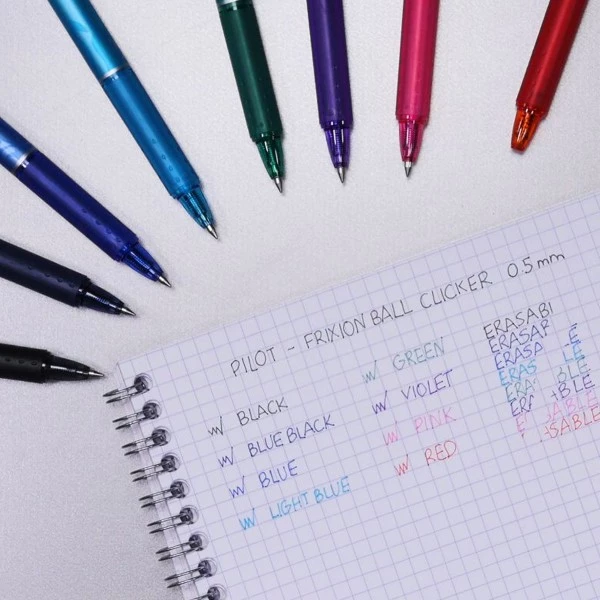 PILOT - FRIXION BALL CLICKER 0.5mm
BLACK
BLUE BLACK
BLUE
LIGHT BLUE
GREEN
VIOLET
PINK
RED
ERASABL
ERASAB
ERASA
ERAS BLE
ERA BLE
ERA ABLE
E ABLE
SABLE